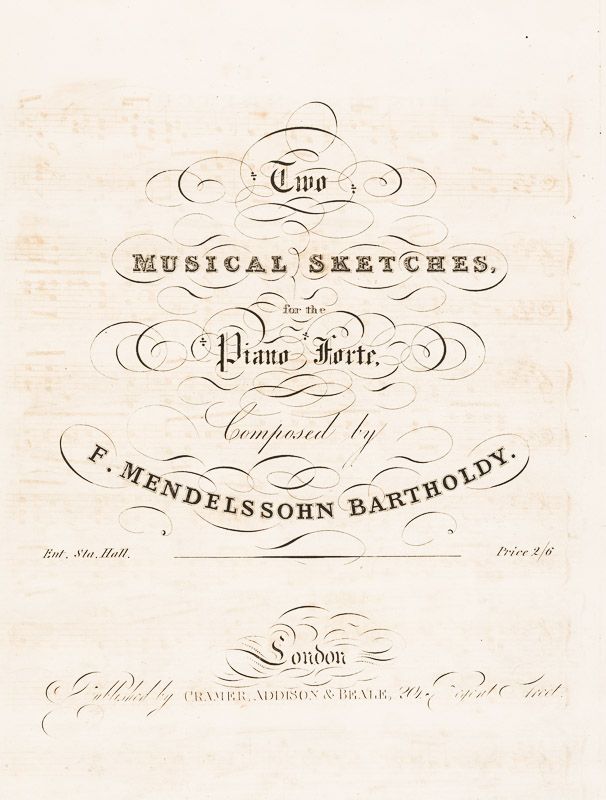 Two
MUSICAL SKETCHES,
for the
Piano Forte,
Composed by
F. MENDELSSOHN BARTHOLDY.
Ent. Sta. Hall.
Price 2/6
London
Published by CRAMER, ADDISON & BEALE, 201, Regent Street.